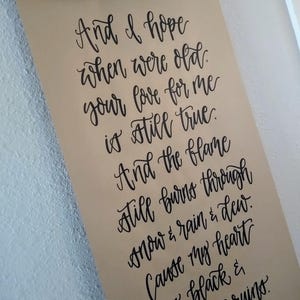 And I hope
when were old.
your love for me
is still true.
And the flame
still burns through
snow & rain & dew.
Cause my heart
black &
ruins.